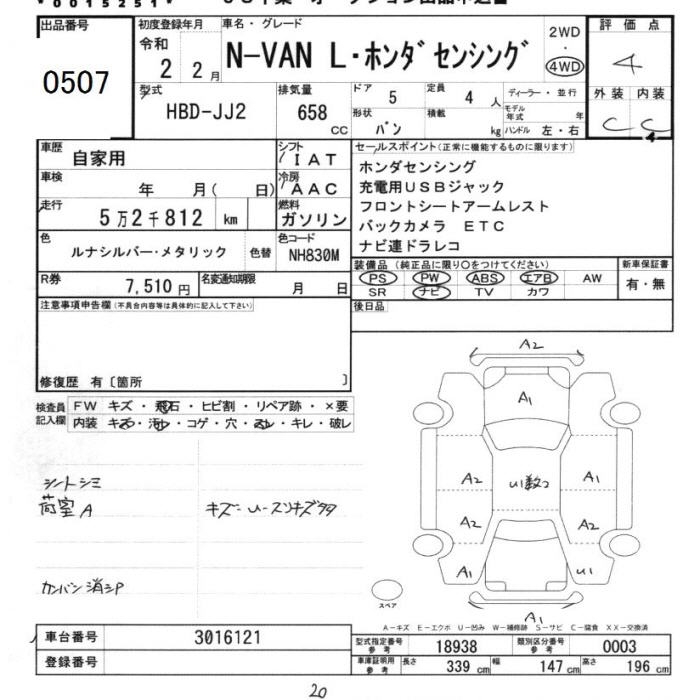 出品番号
0507
初度登録年月
令和
2 2月
車名・グレード
N-VAN L・ホンダセンシング
2WD
・
4WD
評価点
4
外装 内装
C C
型式
HBD-JJ2
排気量
658
CC
ドア
5
定員
4 人
形状
バン
積載
kg
ディーラー・並行
モデル年式 年
ハンドル 左・右
車歴
自家用
シフト
IAT
車検
年 月( 日)
冷房
AAC
走行
5万2千812 km
燃料
ガソリン
色
ルナシルバー・メタリック
色替
色コード
NH830M
R券
7,510円
名変通知期限
月 日
セールスポイント(正常に機能するものに限ります)
ホンダセンシング
充電用USBジャック
フロントシートアームレスト
バックカメラ ETC
ナビ連ドラレコ
装備品(純正品に限り○をつけてください)
PS PW ABS エアB AW
SR ナビ TV カワ
新車保証書
有・無
後日品
注意事項申告欄(不具合内容等は具体的に記入して下さい)
修復歴 有〔箇所 〕
検査員
記入欄
FW キズ・飛石・ヒビ割・リペア跡・×要
内装 キズ・汚れ・コゲ・穴・スレ・キレ・破レ
シートシミ
荷室A
キズ=U-スリキズ多
カンバン消シP
A2
A1
A2
U1数つ
A1
A2
A2
A1
U1
A1
スペア
A-キズ E-エクボ U-凹み W-補修跡 S-サビ C-腐食 XX-交換済
車台番号
3016121
登録番号
型式指定番号
参考
18938
類別区分番号
参考
0003
車庫証明用
参考
長さ 339 cm
幅 147 cm
高さ 196 cm
20